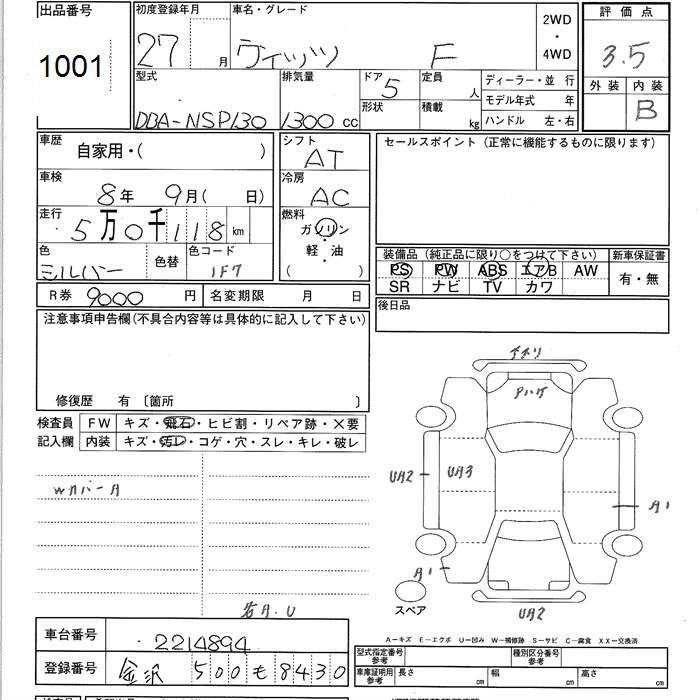 出品番号 初度登録年月 車名・グレード 2WD・4WD 評価点
1001 27 月 ヴィッツ F 3.5
型式 排気量 ドア 定員 ディーラー・並 行 外装 内装
DBA-NSP130 1300 cc 5 人 モデル年式 年 B
形状 積載 kg ハンドル 左・右
車歴 自家用・( ) シフト AT セールスポイント(正常に機能するものに限ります)
車検 8年 9月( 日) 冷房 AC
走行 5万0千118km 燃料 ガソリン・軽・油 ( )
色 シルバー 色替 色コード 1F7
装備品(純正品に限り○をつけて下さい) 新車保証書
PS PW ABS エアB AW 有・無
SR ナビ TV カワ
R券 9000 円 名変期限 月 日 後日品
注意事項申告欄(不具合内容等は具体的に記入して下さい)
修復歴 有 〔箇所 〕
検査員記入欄 FW キズ・飛石・ヒビ割・リペア跡・×要
内装 キズ・汚レ・コゲ・穴・スレ・キレ・破レ
Wカバー A
若A.U
Pハゲ
UA2 UA3 A1
A1
UA2
スペア
車台番号 2214894
登録番号 金沢 500 も 8430
A-キズ E-エクボ U-凹み W-補修跡 S-サビ C-腐食 XX-交換済
型式指定番号 参考 種別区分番号 参考
車庫証明用 参考 長さ cm 幅 cm 高さ cm